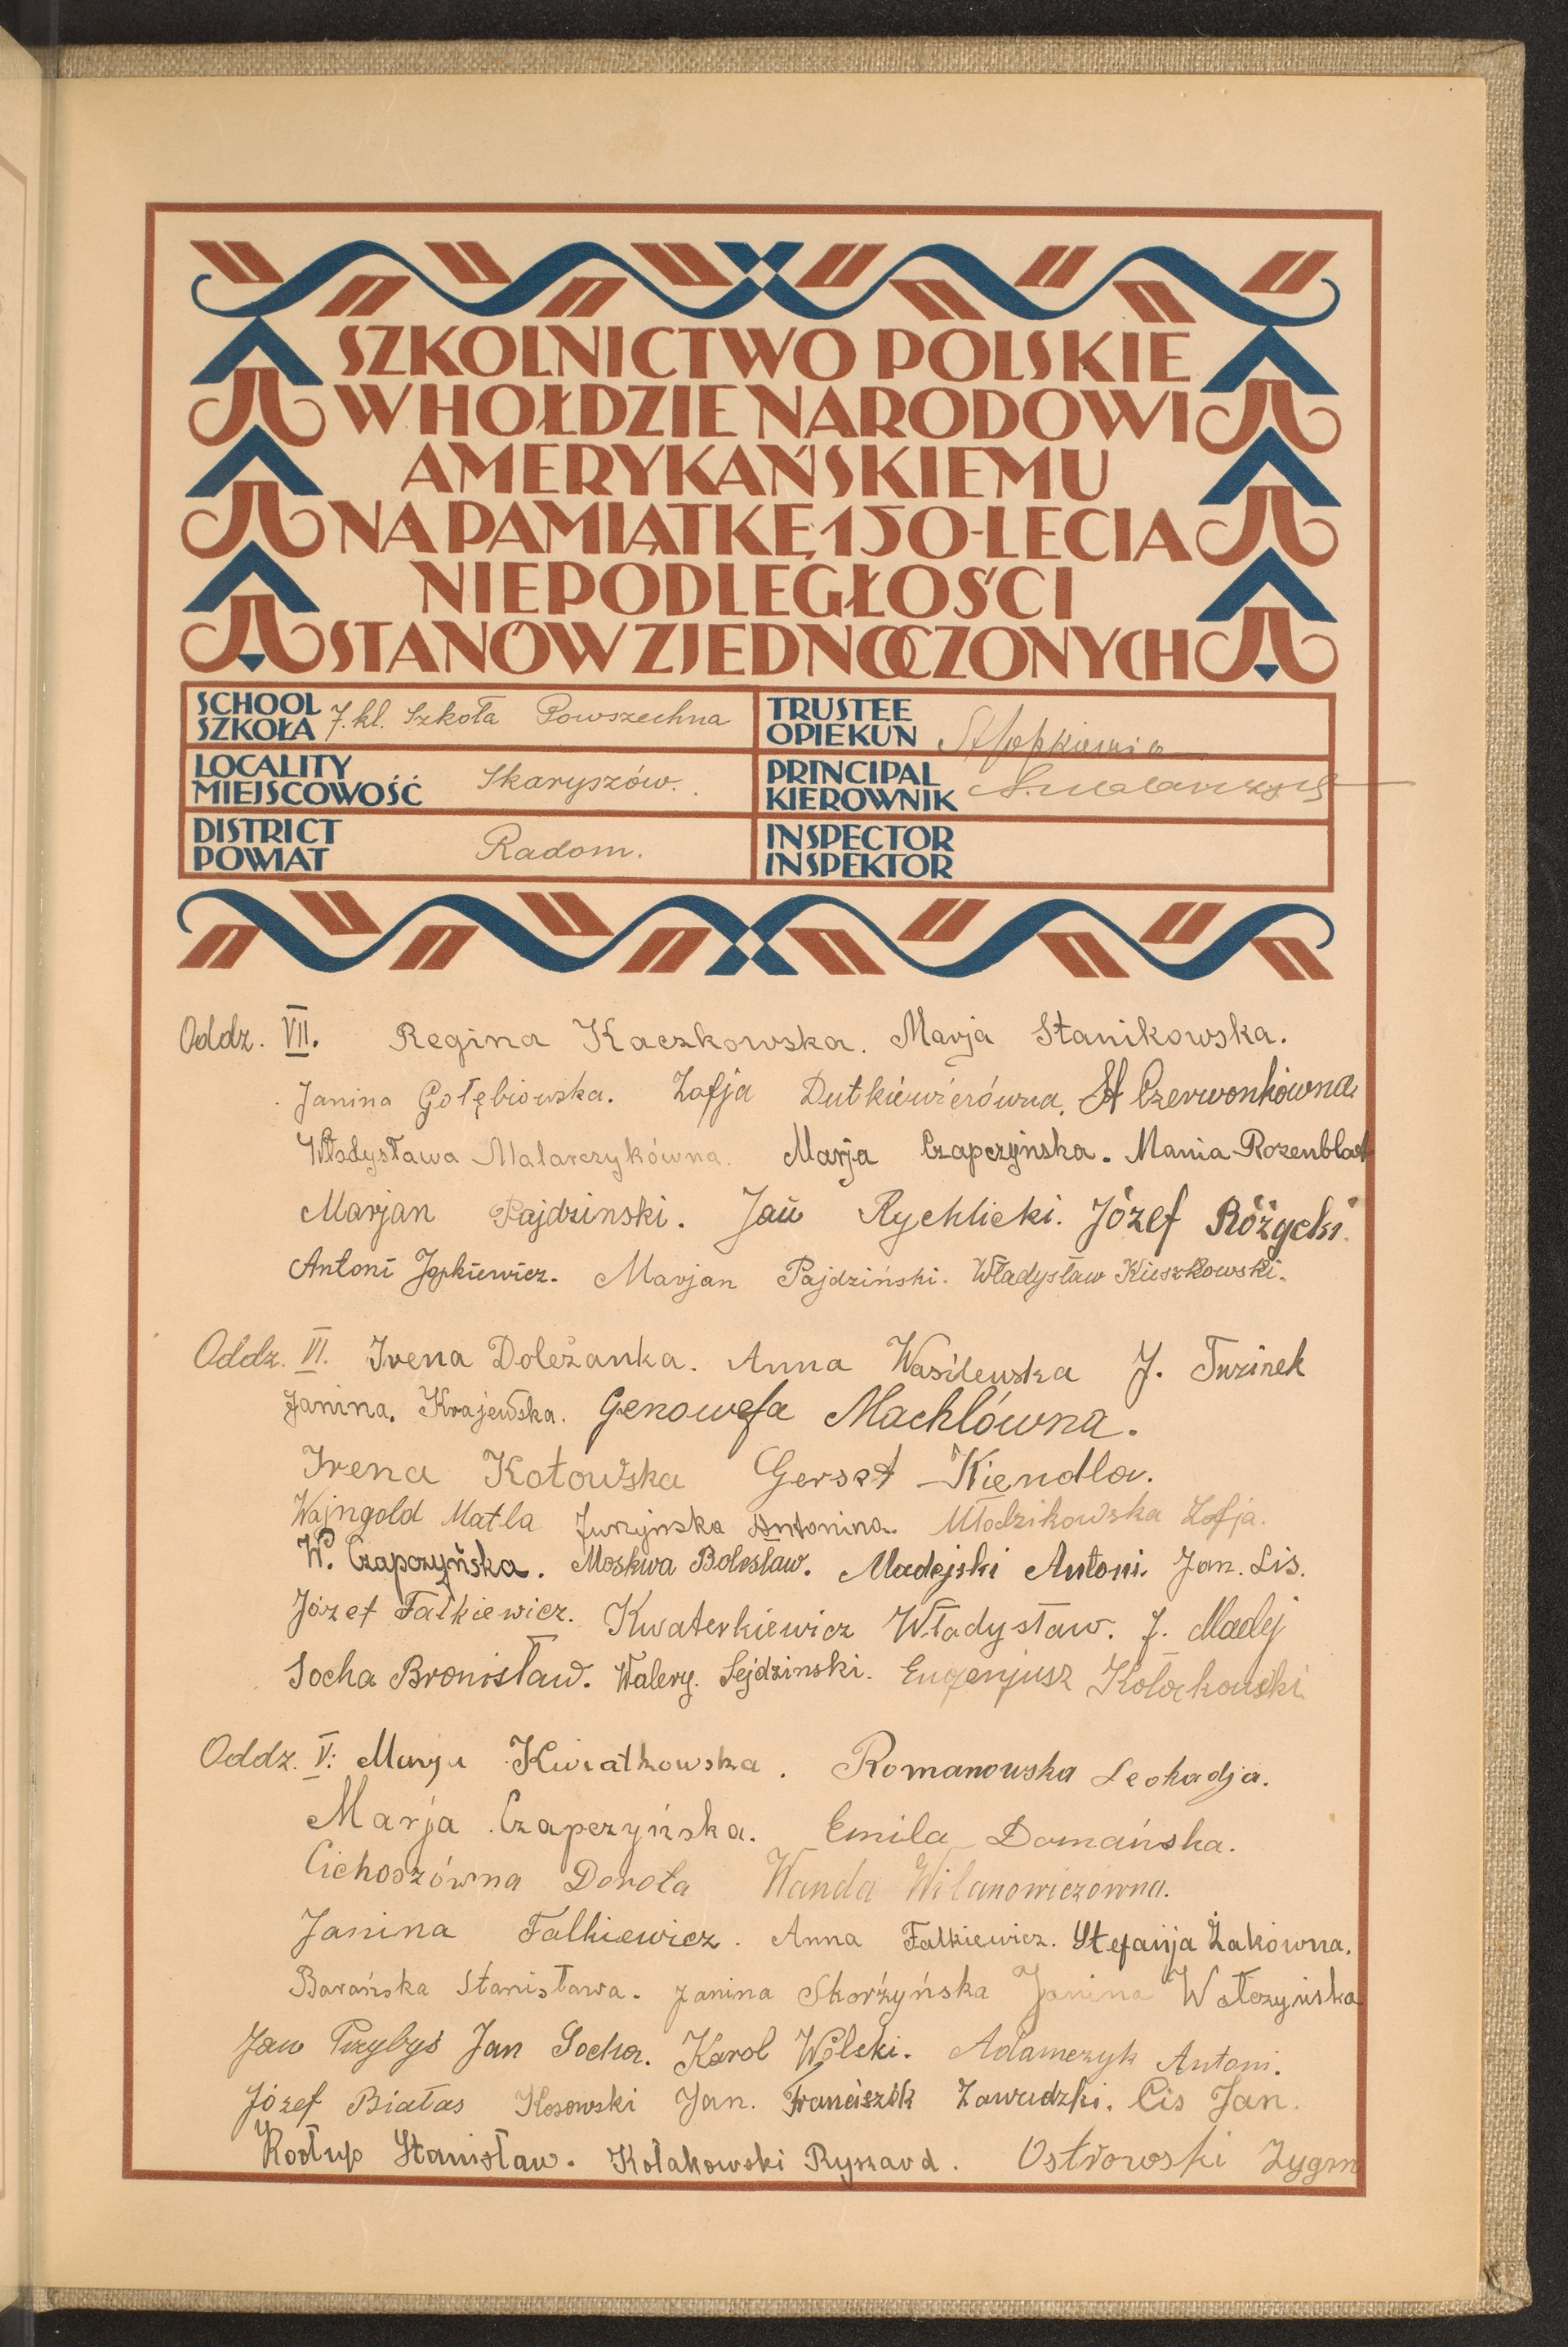 SZKOLNICTWO POLSKIE
W HOŁDZIE NARODOWI
AMERYKAŃSKIEMU
NA PAMIĄTKĘ 150-LECIA
NIEPODLEGŁOŚCI
STANÓW ZJEDNOCZONYCH
SCHOOL
SZKOŁA 7. kl. Szkoła Powszechna
TRUSTEE
OPIEKUN
LOCALITY
MIEJSCOWOŚĆ Skaryszów.
PRINCIPAL
KIEROWNIK
DISTRICT
POWIAT Radom.
INSPECTOR
INSPEKTOR
Oddz. VII. Regina Kaczkowska. Marja Stanikowska.
Janina Gołębiowska. Zofja Dutkiewiczówna. St Czerwonkówna
Władysława Malarczykówna. Marja Czapczyńska. Mania Rozenblat
Marjan Pajdzinski. Jan Rychlicki. Józef Różycki.
Antoni Jopkiewicz. Marjan Pajdziński. Władysław Kieszkowski.
Oddz. VI. Irena Doleżanka. Anna Wasilewska J. Tuzinek
Janina. Krajewska. Genowefa Machlówna.
Irena Kotowska Gerszt Kiendla.
Wajngold Matla Antonina. Młodzikowska Zofja.
W. Czapczyńska. Moskwa Bolesław. Madejski Antoni. Jan. Lis.
Józef Falkiewicz. Kwaterkiewicz Władysław. J. Madej
Socha Bronisław. Walery. Sejdzinski. Eugenjusz
Oddz. V: Marja Kwiatkowska. Romanowska Leokadja.
Marja Czapczyńska. Emila Domańska.
Cichoszówna Dorota Wanda Wilanowiczówna.
Janina Falkiewicz. Anna Falkiewicz. Stefanja Żakówna.
Barańska Stanisława. Janina Skórzyńska Janina Wołczyńska
Jan Przybyś Jan Socha. Karol Wolski. Adamczyk Antoni.
Józef Białas Kosowski Jan. Franciszek Zawadzki. Cis Jan.
Kostup Stanisław. Kołakowski Ryszard. Ostrowski Zygm